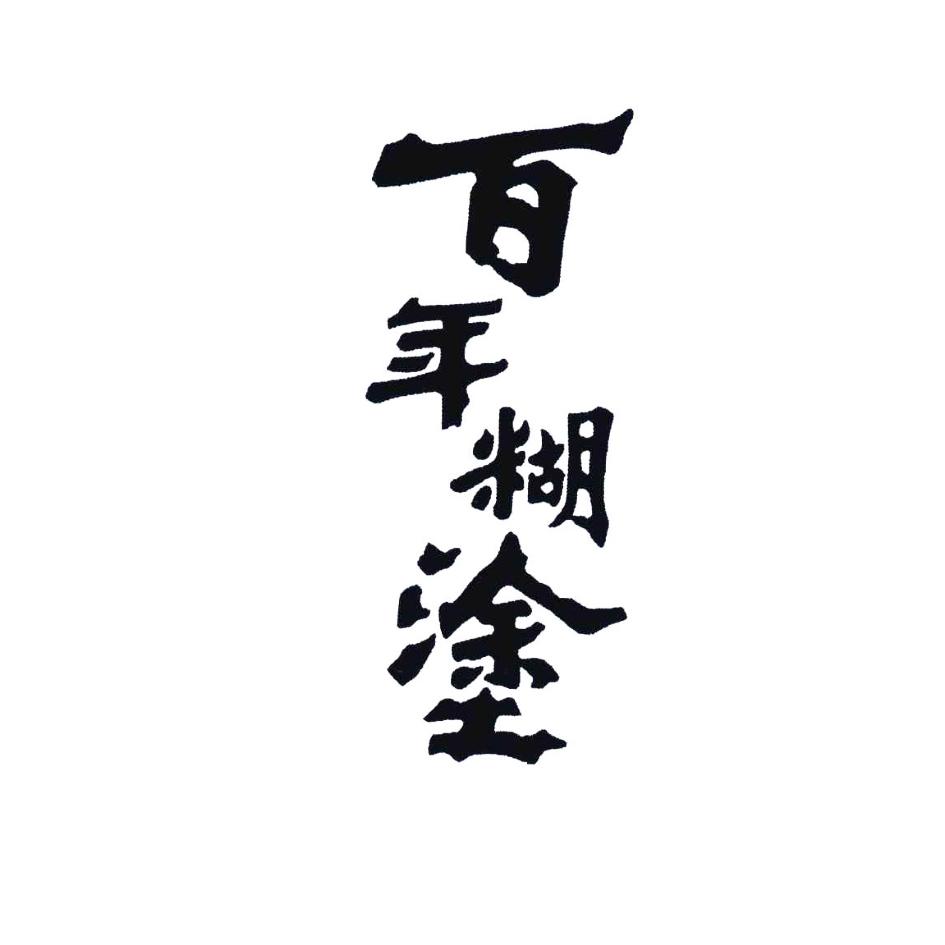 百年糊塗